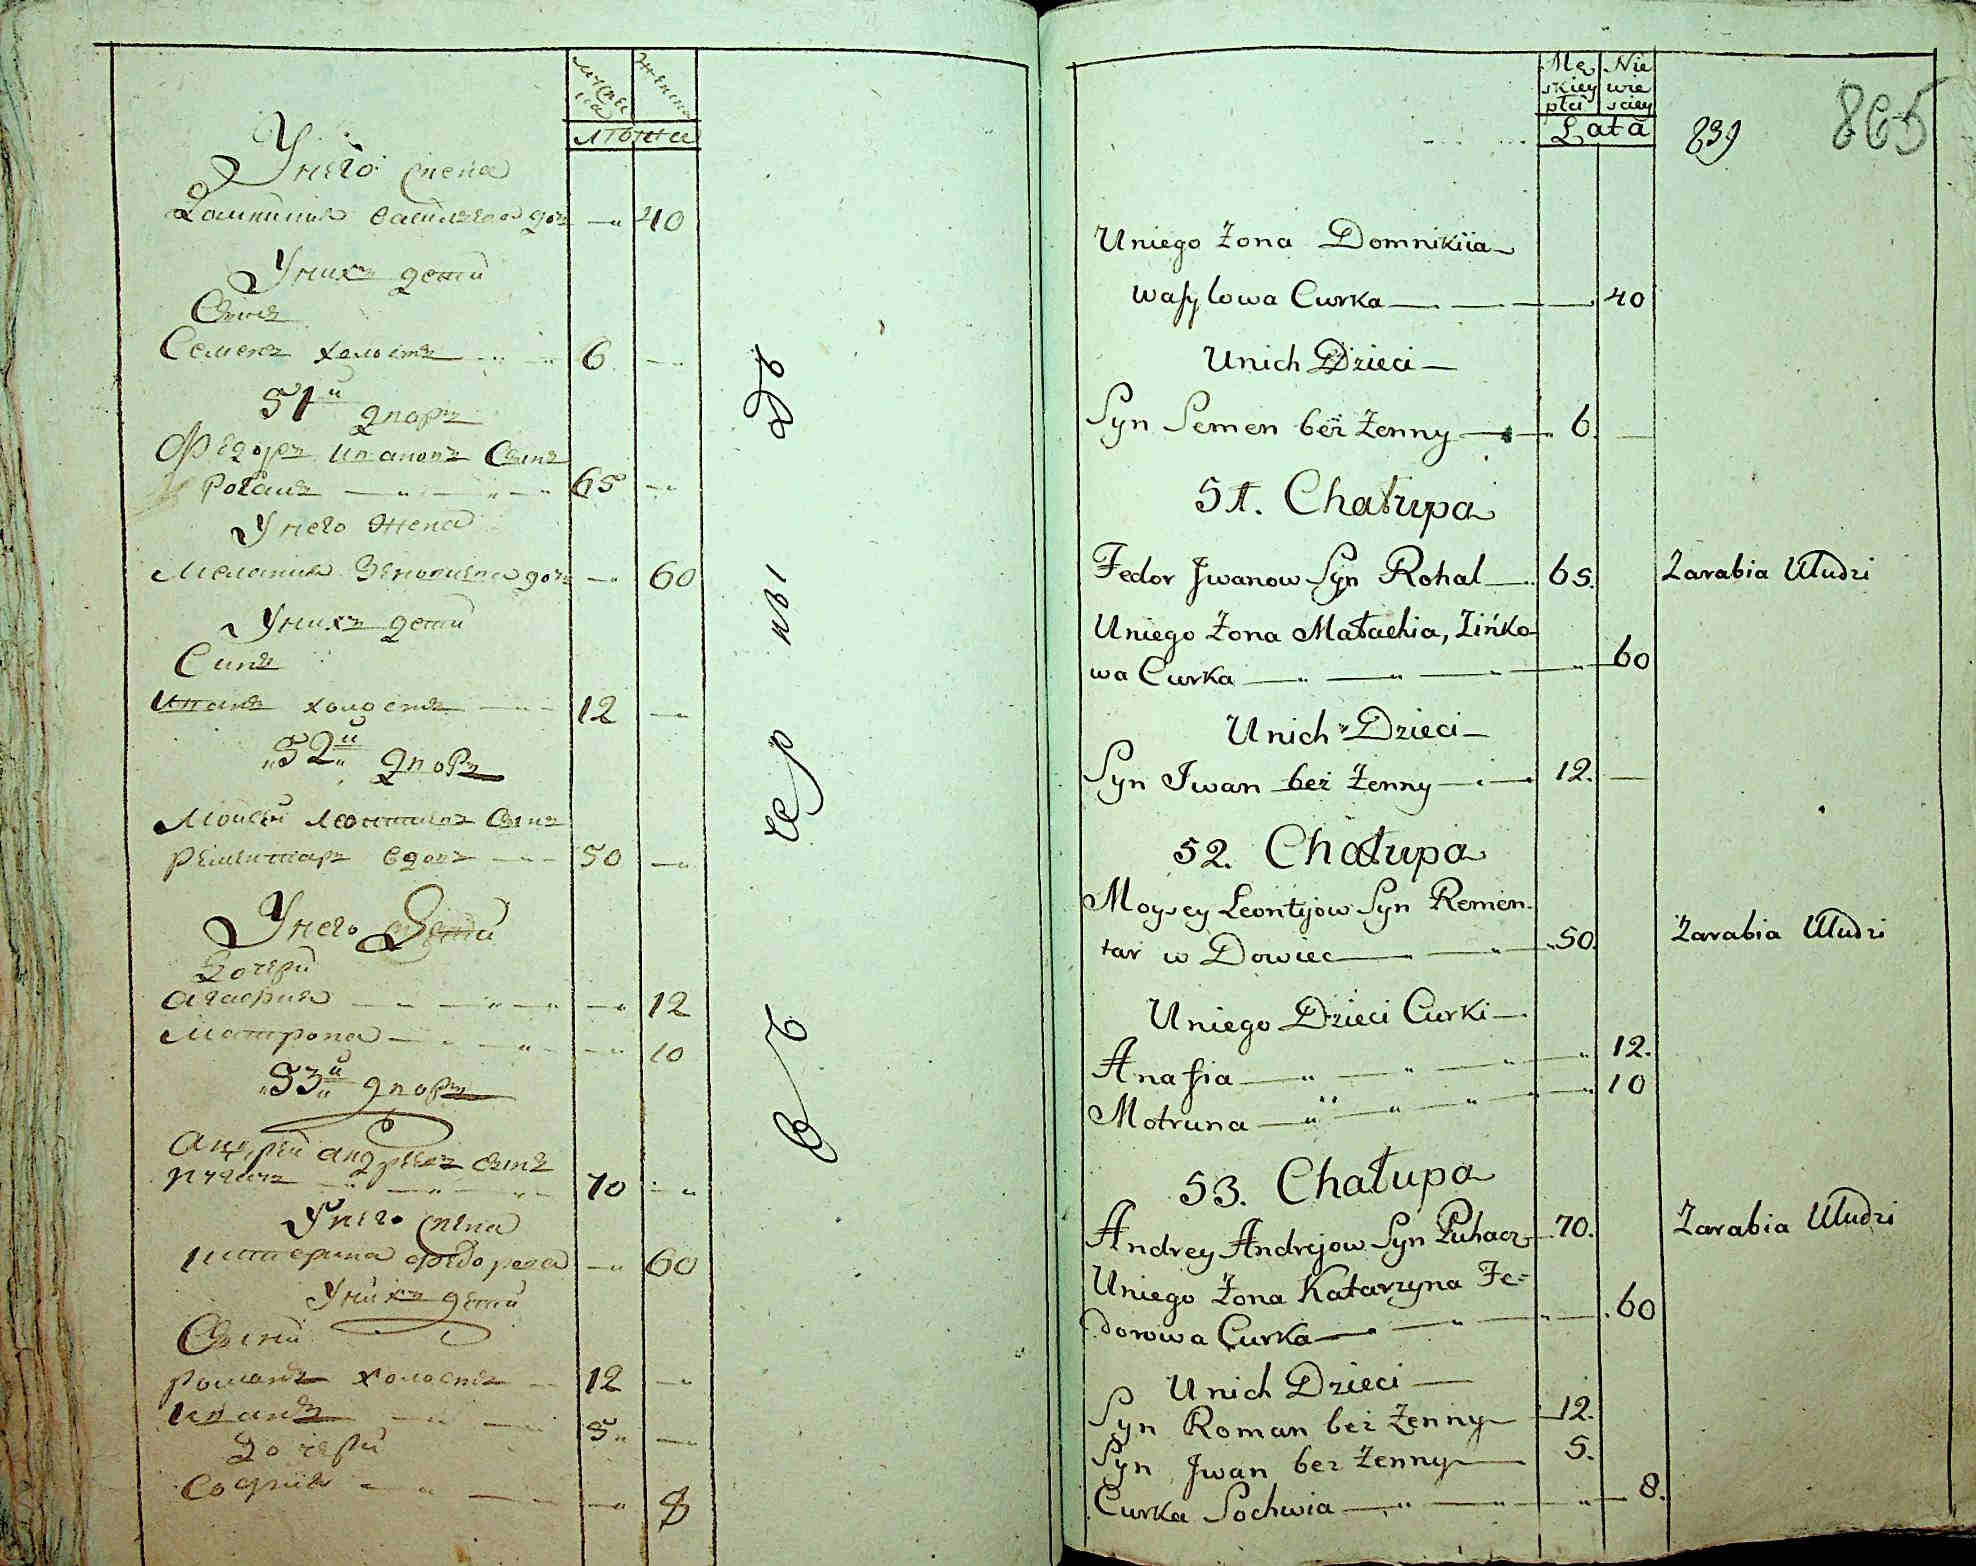 мужеска
женска
лѣта
У него жена
Домникия василева доч 40
У нихъ дети
Сынъ
Семенъ холостъ 6
51й дворъ
Федоръ Ивановъ Сынъ
Рогаль 65
У него жена
Мелания Зеновиева доч 60
У нихъ дети
Синъ
Иванъ холостъ 12
52й дворъ
Моисей Леонтиевъ Сынъ
Реминтаръ вдовъ 50
У него Дети
Дочери
Агафия 12
Матрона 10
53й дворъ
Андрей андреевъ сынъ
Пугачъ 70
У него жена
Катерина федорова 60
У нихъ дети
Сыни
Романъ холостъ 12
Иванъ 5
Дочери
София 8
Męskiey płci
Nie wie sciey
Lata
839
865
Uniego Żona Domnikiia
Wasylowa Curka 40
Unich Dzieci
Syn Semen beż Żenny 6.
51. Chałupa
Fedor Jwanow Syn Rohal 65. Zarabia Uludzi
Uniego Żona Małachia, Zińko-
wa Curka 60
Unich Dzieci
Syn Jwan beż Żenny 12.
52. Chałupa
Moysey Leontyjow Syn Remen-
tar w Dowiec 50. Zarabia Uludzi
Uniego Dzieci Curki
Anasia 12.
Motruna 10
53. Chałupa
Andrey Andrejow Syn Puhacz 70. Zarabia Uludzi
Uniego Żona Katarzyna Fe-
dorowa Curka 60
Unich Dzieci
Syn Roman beż Żenny 12.
Syn Jwan bez Żenny 5.
Curka Sochwia 8.